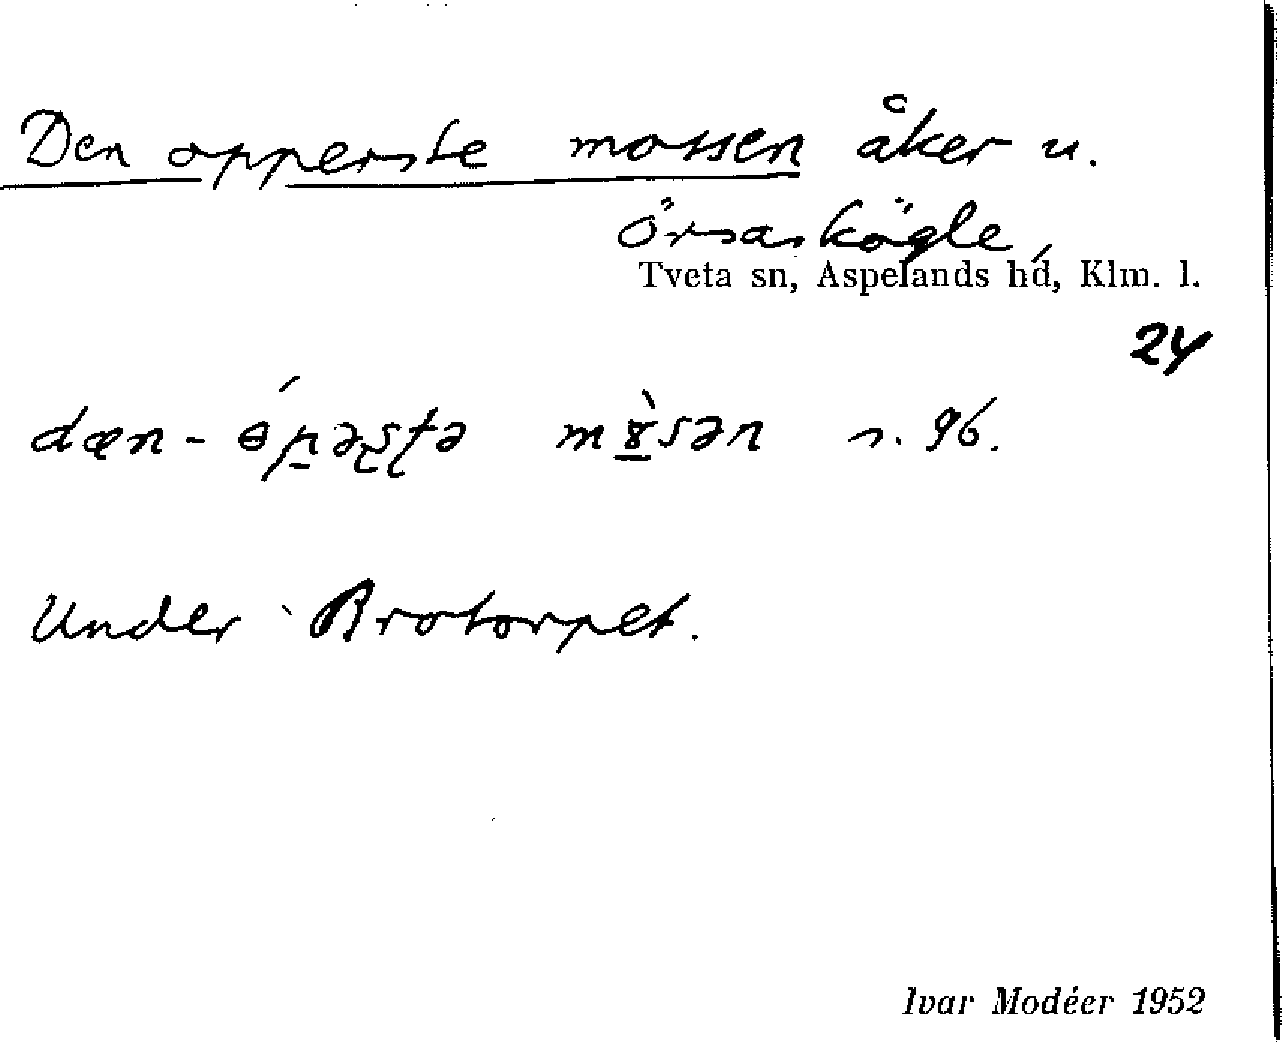 Den opperste mossen åker u.
Örsaskögle,
Tveta sn, Aspelands hd, Klm. l.
24
s. 96.
Under Brotorpet.
Ivar Modéer 1952